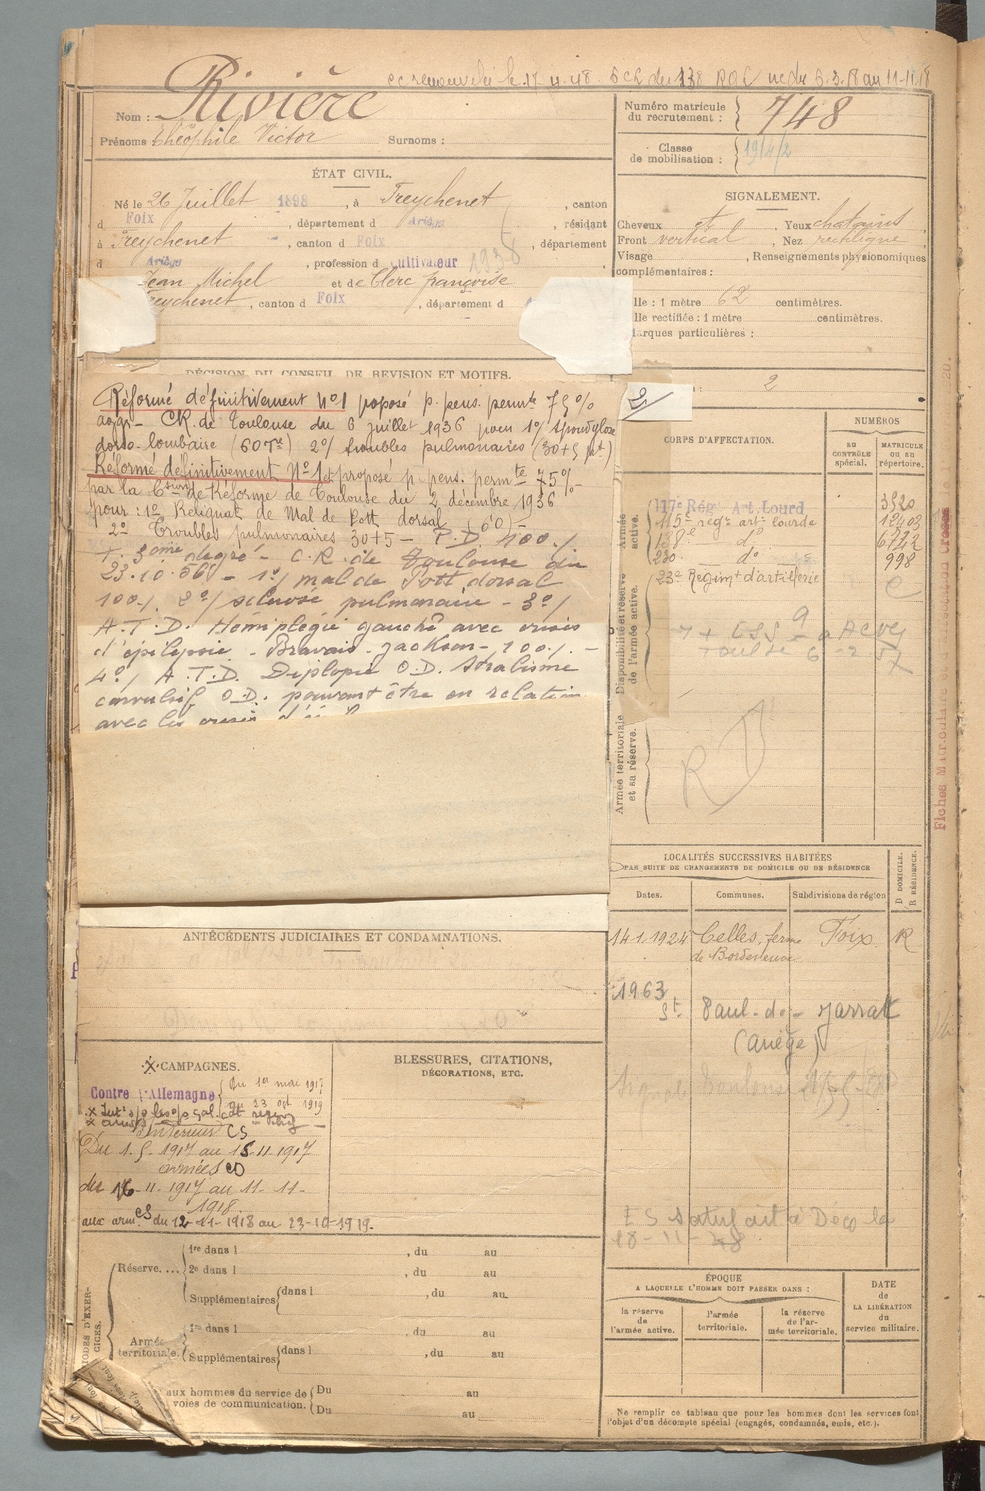 cc renouvelée le 17 4 48 138 RAL du 5.3.18 au 11-11.18
Nom : Rivière
Prénoms : Théophile Victor Surnoms :
Numéro matricule du recrutement : 748
Classe de mobilisation :
ÉTAT CIVIL.
Né le 26 Juillet 1898, à Freychenet, canton
d Foix, département d Ariège résidant
à Freychenet, canton d Foix, département
d Ariège, profession d cultivateur 1938
Jean Michel et de Clerc françoise
Freychenet, canton d Foix, département d
SIGNALEMENT.
Cheveux et, Yeux chatains
Front vertical, Nez rectiligne
Visage, Renseignements physionomiques
complémentaires :
lle : 1 mètre 62 centimètres.
lle rectifiée : 1 mètre centimètres.
arques particulières :
: 2
DÉCISION DU CONSEIL DE REVISION ET MOTIFS.
Réformé définitivement N°1 proposé p. pens. permte 75%
CR. de Toulouse du 6 juillet 1936 pour 1°/
dorso-lombaire (60%) 2°/ troubles pulmonaires (30+5)
Réformé définitivement N°1 et proposé p. pens. permte 75%
par la de Réforme de Toulouse du 2 décembre 1936
pour : 1° Reliquat de Mal de Pott dorsal (60) -
2° Troubles pulmonaires 30+5 - P.D. 100%
T. 3ème degré - C.R. de Toulouse du
23.10.56 - 1°/ mal de Pott dorsal
100% 2°/ sclérose pulmonaire - 3°/
A.T.D. Hémiplégie gauche avec crises
d'épilepsie - Bravais - Jackson - 100% -
4°/ A.T.D. Diplopie O.D. Strabisme
convulsif O.D. pouvant être en relation
avec les crises
2/
CORPS D'AFFECTATION.
NUMÉROS
AU CONTRÔLE spécial.
MATRICULE OU AU répertoire.
Armée active.
117e Rég. Art. Lourd 3920
115e rég. art. lourde 12403
138e d° 6742
230 d° 998
23e Regimt d'artillerie
Disponibilité et réserve de l'armée active.
Armée territoriale et sa réserve.
RD
Fiches Matricules
LOCALITÉS SUCCESSIVES HABITÉES
PAR SUITE DE CHANGEMENTS DE DOMICILE OU DE RÉSIDENCE
Dates. Communes. Subdivisions de région
D DOMICILE. R RÉSIDENCE.
14.1.1924 Celles, ferme de Bordeneuve Foix R
1963 St Paul-de-Jarrat
(Ariège)
E S satisfait à Deco le
18-11-48
ANTÉCÉDENTS JUDICIAIRES ET CONDAMNATIONS.
CAMPAGNES.
Contre l'Allemagne Du 1er mai 1917
Du 23 oct 1919
Intérieur CS
Du 1.5.1917 au 15.11.1917
armées CD
du 16-11.1917 au 11-11-
1918.
aux armées CS du 12-11-1918 au 23-10-1919.
BLESSURES, CITATIONS,
DÉCORATIONS, ETC.
ODES D'EXERCICES.
Réserve.... 1re dans l, du au
2e dans l, du au
Supplémentaires dans l, du au
Armée territoriale. 1re dans l, du au
Supplémentaires dans l, du au
aux hommes du service de voies de communication. Du au
Du au
ÉPOQUE
A LAQUELLE L'HOMME DOIT PASSER DANS :
la réserve de l'armée active.
l'armée territoriale.
la réserve de l'armée territoriale.
DATE DE LA LIBÉRATION du service militaire.
Ne remplir ce tableau que pour les hommes dont les services font
l'objet d'un décompte spécial (engagés, condamnés, omis, etc.).